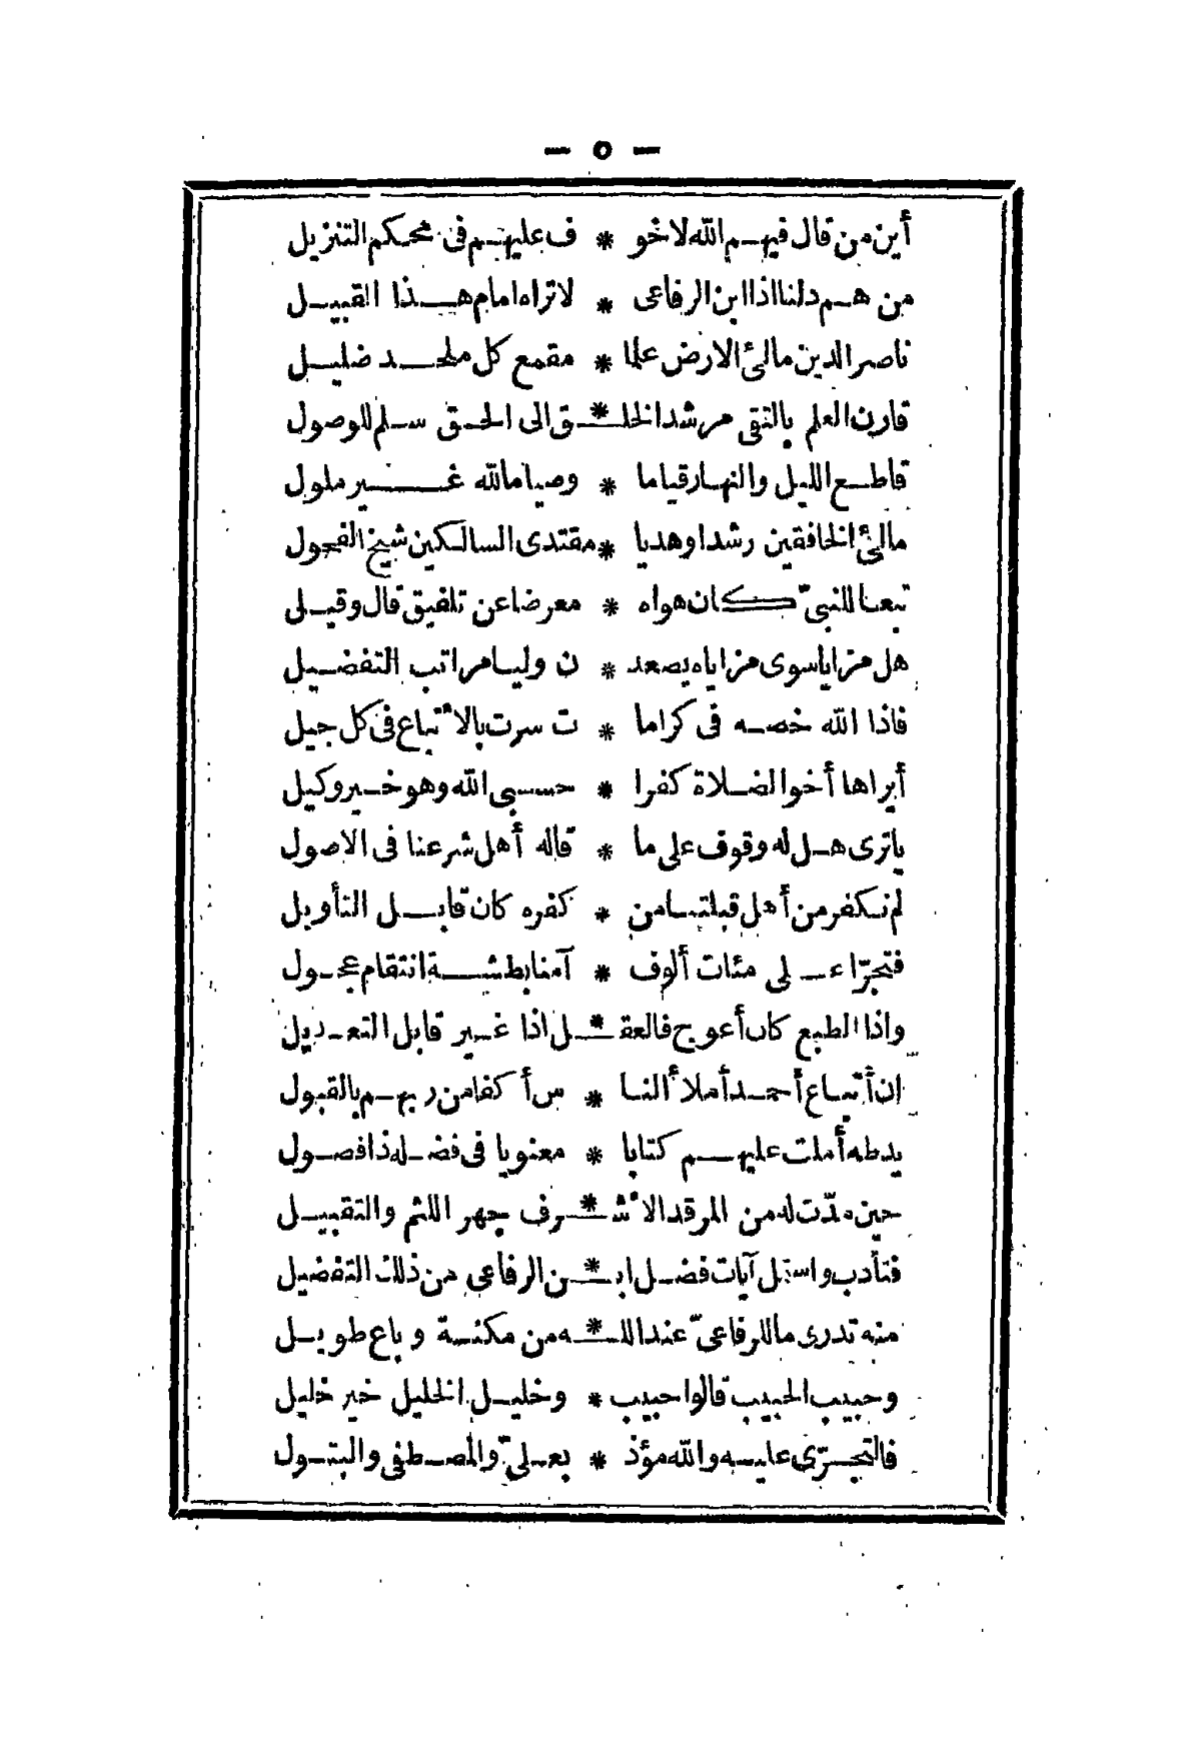 — ٥ —
أين من قال فيهم الله لا خو * ف عليهم فى محكم التنزيل
من هم دلنا اذا ابن الرفاعى * لا تراه امام هذا القبيل
ناصر الدين مالئ الارض علما * مقمع كل ملحد ضليل
قارن العلم بالتقى مرشد الخلـ * ـق الى الحق سلم للوصول
قاطع الليل والنهار قياما * وصياما لله غير ملول
مالئ الخافقين رشدا وهديا * مقتدى السالكين شيخ الفحول
تبعا للنبىّ كان هواه * معرضا عن تلفيق قال وقيل
هل مزايا سوى مزاياه يصعد * ن وليا مراتب التفضيل
فاذا الله خصه فى كراما * ت سرت بالأتباع فى كل جيل
أيراها أخو الضلاة كفرا * حسبى الله وهو خير وكيل
يا ترى هل له وقوف على ما * قاله أهل شرعنا فى الاصول
لم نكفر من أهل قبلتنا من * كفره كان قابل التأويل
فتجرّا على مئات ألوف * آمنا بطشة انتقام عجول
واذا الطبع كان أعوج فالعقـ * ـل اذا غير قابل التعديل
ان أتباع أحمد أملأ النا * س أكفا من ربهم بالقبول
يد طه أملت عليهم كتابا * معنويا فى فضله ذا فصول
حين مدّت له من المرقد الأشـ * ـرف جهر اللثم والتقبيل
فتأدب واستل آيات فضل ابـ * ـن الرفاعى من ذلك التفضيل
منه تدرى ما للرفاعىّ عند اللـ * ـه من مكنة وباع طويل
وحبيب الحبيب قالوا حبيب * وخليل الخليل خير خليل
فالتجرّى عليه والله مؤذ * بعلىّ والمصطفى والبتول